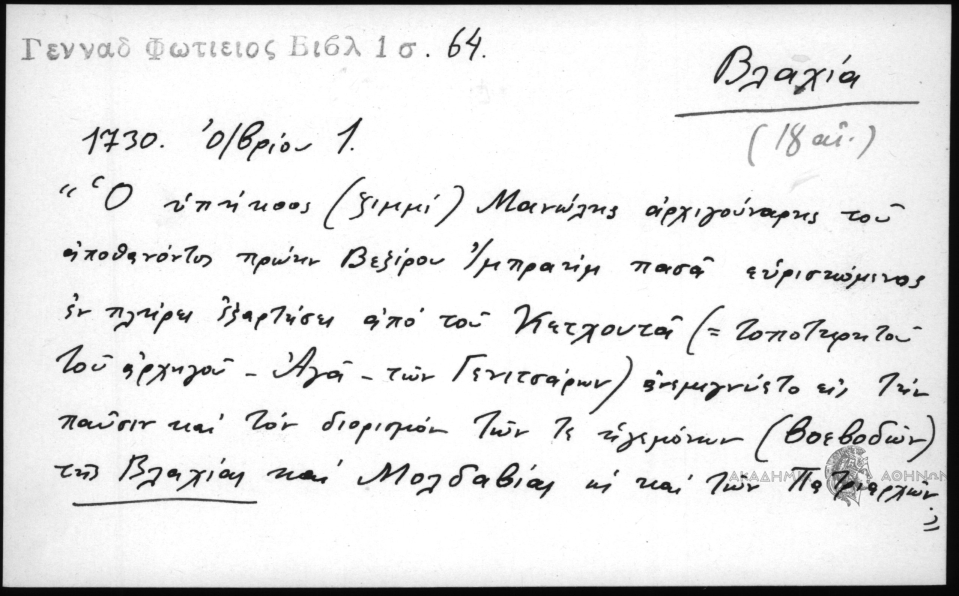 Γενναδ Φωτιειος Βιβλ 1 σ. 64.
Βλαχία
(18 αἰ.)
1730. Ὀ/βρίου 1.
"Ὁ ὑπήκοος (ζιμμί) Μανώλης ἀρχιγούναρης τοῦ
ἀποθανόντος πρώην Βεζίρου Ἰμπραήμ πασᾶ εὑρισκόμενος
ἐν πλήρει ἐξαρτήσει ἀπό τοῦ Κετχουτᾶ (= τοποτηρητοῦ
τοῦ ἀρχηγοῦ - Ἀγᾶ - τῶν Γενιτσάρων) ἀνεμιγνύετο εἰς τήν
παῦσιν καί τόν διορισμόν τῶν τε ἡγεμόνων (βοεβοδῶν)
τῆς Βλαχίας καί Μολδαβίας καί τῶν Πατριαρχῶν"
ΑΚΑΔΗΜΙΑ ΑΘΗΝΩΝ